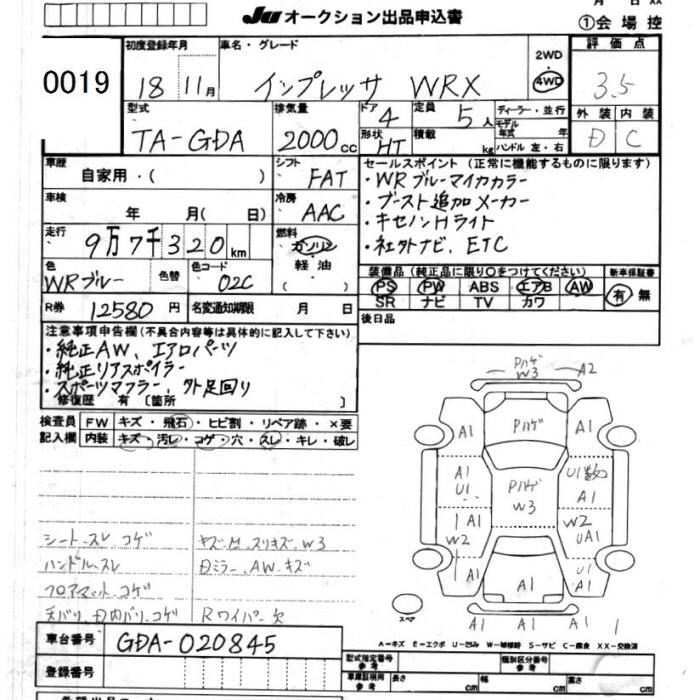 月 日 XX
JU オークション出品申込書
①会場控
0019
初度登録年月 車名・グレード 2WD・4WD 評価点
18 11月 インプレッサ WRX 3.5
型式 排気量 ドア 定員 ディーラー・並行 外装 内装
TA-GDA 2000cc 4 5人 モデル年式 年 D C
形状 HT 積載 kg ハンドル 左・右
車歴 シフト セールスポイント (正常に機能するものに限ります)
自家用・( ) FAT ・WRブルーマイカカラー
車検 冷房 ・ブースト追加メーカー
年 月( 日) AAC ・キセノンHライト
走行 燃料 ・社外ナビ、ETC
9万7千320km ガソリン
軽油
・( )
色 色替 色コード 装備品 (純正品に限り○をつけてください) 新車保証書
WRブルー 02C PS PW ABS エアB AW 有・無
SR ナビ TV カワ
R券 12580円 名変通知期限 月 日 後日品
注意事項申告欄(不具合内容等は具体的に記入して下さい)
・純正AW、エアロパーツ
・純正リアスポイラー
・スポーツマフラー、外足回り
修復歴 有 〔箇所 〕
検査員記入欄 FW キズ・飛石・ヒビ割・リペア跡・×要
内装 キズ・汚レ・コゲ・穴・スレ・キレ・破レ
シートスレ、コゲ
ハンドルスレ
フロアマット、コゲ
Rワイパー欠
PハゲW3 A2
A1 Pハゲ A1
A1 U1 PハゲW3 U1数 A1
A1 W2 W2 UA1
A1 A1 A1
A1 A1 A1
スペア
A-キズ E-エクボ U-凹み W-補修跡 S-サビ C-腐食 XX-交換済
車台番号 GDA-020845
登録番号
型式指定番号 参考 類別区分番号 参考
車庫証明用 参考 長さ 幅 高さ cm